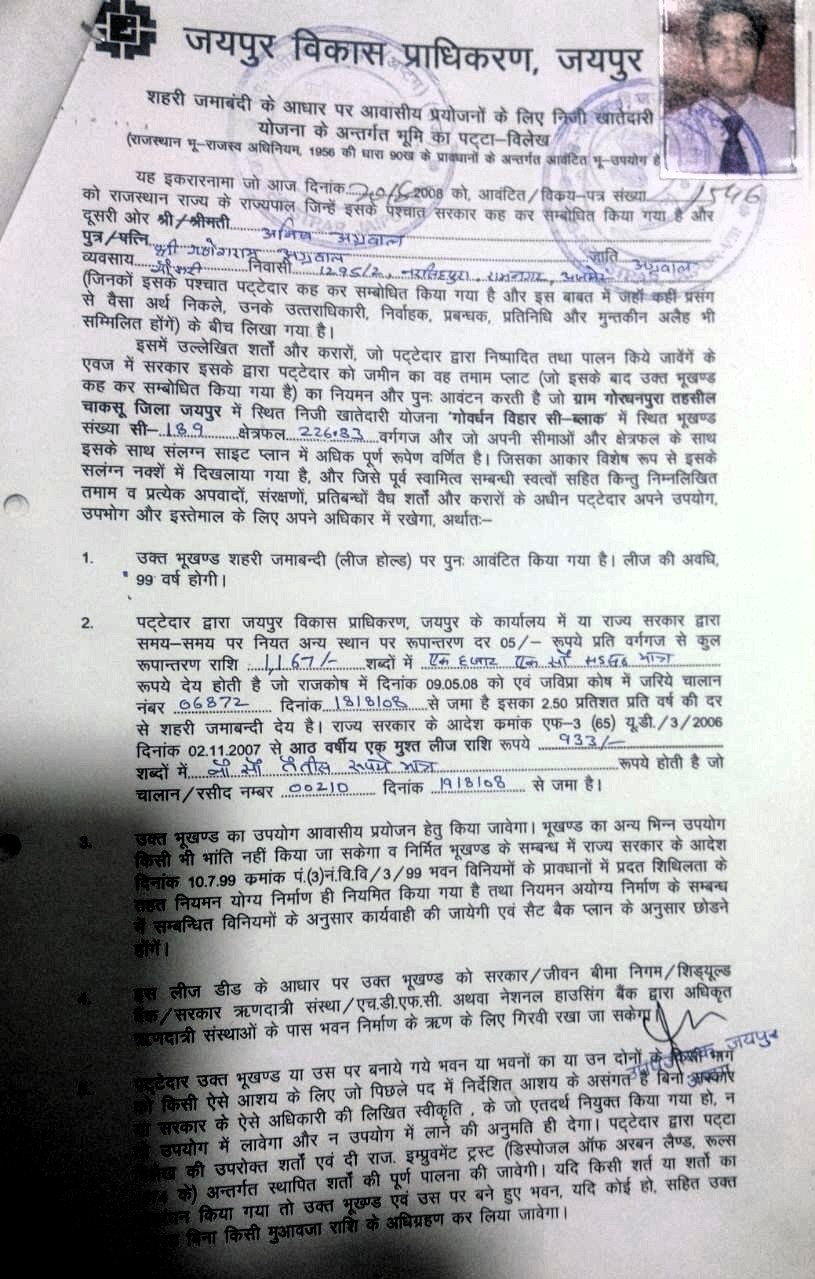 जयपुर विकास प्राधिकरण, जयपुर
शहरी जमाबंदी के आधार पर आवासीय प्रयोजनों के लिए निजी खातेदारी
योजना के अन्तर्गत भूमि का पट्टा-विलेख
(राजस्थान भू-राजस्व अधिनियम, 1956 की धारा 90ख के प्रावधानों के अन्तर्गत आवंटित भू-उपयोग हे
यह इकरारनामा जो आज दिनांक 2008 को, आवंटित/विकय-पत्र संख्या 1546
को राजस्थान राज्य के राज्यपाल जिन्हें इसके पश्चात सरकार कह कर सम्बोधित किया गया है और
दूसरी ओर श्री/श्रीमती अनिल अग्रवाल
पुत्र/पत्नि श्री अग्रवाल जाति अग्रवाल
व्यवसाय नौकरी निवासी 1295/2, नरसिंहपुरा रामनगर, अजमेर
(जिनकों इसके पश्चात पट्टेदार कह कर सम्बोधित किया गया है और इस बाबत में जहाँ कहीं प्रसंग
से वैसा अर्थ निकले, उनके उत्तराधिकारी, निर्वाहक, प्रबन्धक, प्रतिनिधि और मुन्तकीन अलैह भी
सम्मिलित होंगें) के बीच लिखा गया है।
इसमें उल्लेखित शर्तो और करारों, जो पट्टेदार द्वारा निष्पादित तथा पालन किये जावेंगें के
एवज में सरकार इसके द्वारा पट्टेदार को जमीन का वह तमाम प्लाट (जो इसके बाद उक्त भूखण्ड
कह कर सम्बोधित किया गया है) का नियमन और पुनः आवंटन करती है जो ग्राम गोरधनपुरा तहसील
चाकसू जिला जयपुर में स्थित निजी खातेदारी योजना 'गोवर्धन विहार सी-ब्लाक' में स्थित भूखण्ड
संख्या सी- 189 क्षेत्रफल 226.83 वर्गगज और जो अपनी सीमाओं और क्षेत्रफल के साथ
इसके साथ संलग्न साइट प्लान में अधिक पूर्ण रूपेण वर्णित है। जिसका आकार विशेष रूप से इसके
सलंग्न नक्शें में दिखलाया गया है, और जिसे पूर्व स्वामित्व सम्बन्धी स्वत्वों सहित किन्तु निम्नलिखित
तमाम व प्रत्येक अपवादों, संरक्षणों, प्रतिबन्धों वैध शर्तो और करारों के अधीन पट्टेदार अपने उपयोग,
उपभोग और इस्तेमाल के लिए अपने अधिकार में रखेगा, अर्थातः-
1. उक्त भूखण्ड शहरी जमाबन्दी (लीज होल्ड) पर पुनः आवंटित किया गया है। लीज की अवधि,
99 वर्ष होगी।
2. पट्टेदार द्वारा जयपुर विकास प्राधिकरण, जयपुर के कार्यालय में या राज्य सरकार द्वारा
समय-समय पर नियत अन्य स्थान पर रूपान्तरण दर 05/- रूपये प्रति वर्गगज से कुल
रूपान्तरण राशि 1,167/- शब्दों में एक हजार एक सौ सडसठ मात्र
रूपये देय होती है जो राजकोष में दिनांक 09.05.08 को एवं जविप्रा कोष में जरिये चालान
नंबर 06872 दिनांक 18/8/08 से जमा है इसका 2.50 प्रतिशत प्रति वर्ष की दर
से शहरी जमाबन्दी देय है। राज्य सरकार के आदेश कमांक एफ-3 (65) यू.डी./3/2006
दिनांक 02.11.2007 से आठ वर्षीय एक मुश्त लीज राशि रूपये 933/-
शब्दों में नौ सौ तैतीस रूपये मात्र रूपये होती है जो
चालान/रसीद नम्बर 00210 दिनांक 19/8/08 से जमा है।
3. उक्त भूखण्ड का उपयोग आवासीय प्रयोजन हेतु किया जावेगा। भूखण्ड का अन्य भिन्न उपयोग
किसी भी भांति नहीं किया जा सकेगा व निर्मित भूखण्ड के सम्बन्ध में राज्य सरकार के आदेश
दिनांक 10.7.99 कमांक पं.(3)नं.वि.वि/3/99 भवन विनियमों के प्रावधानों में प्रदत शिथिलता के
तहत नियमन योग्य निर्माण ही नियमित किया गया है तथा नियमन अयोग्य निर्माण के सम्बन्ध
में सम्बन्धित विनियमों के अनुसार कार्यवाही की जायेगी एवं सैट बैक प्लान के अनुसार छोडने
होंगें।
4. इस लीज डीड के आधार पर उक्त भूखण्ड को सरकार/जीवन बीमा निगम/शिड्यूल्ड
बैंक/सरकार ऋणदात्री संस्था/एच.डी.एफ.सी. अथवा नेशनल हाउसिंग बैंक द्वारा अधिकृत
ऋणदात्री संस्थाओं के पास भवन निर्माण के ऋण के लिए गिरवी रखा जा सकेगा।
जयपुर
पट्टेदार उक्त भूखण्ड या उस पर बनाये गये भवन या भवनों का या उन दोनों के किसी भाग
को किसी ऐसे आशय के लिए जो पिछले पद में निर्देशित आशय के असंगत है बिना सरकार
या सरकार के ऐसे अधिकारी की लिखित स्वीकृति , के जो एतदर्थ नियुक्त किया गया हो, न
उपयोग में लावेगा और न उपयोग में लाने की अनुमति ही देगा। पट्टेदार द्वारा पट्टा
की उपरोक्त शर्तो एवं दी राज. इम्प्रुवमेंट ट्रस्ट (डिस्पोजल ऑफ अरबन लैण्ड, रूल्स
के) अन्तर्गत स्थापित शर्तो की पूर्ण पालना की जावेगी। यदि किसी शर्त या शर्तो का
किया गया तो उक्त भूखण्ड एवं उस पर बने हुए भवन, यदि कोई हो, सहित उक्त
बिना किसी मुआवजा राशि के अधिग्रहण कर लिया जावेगा।